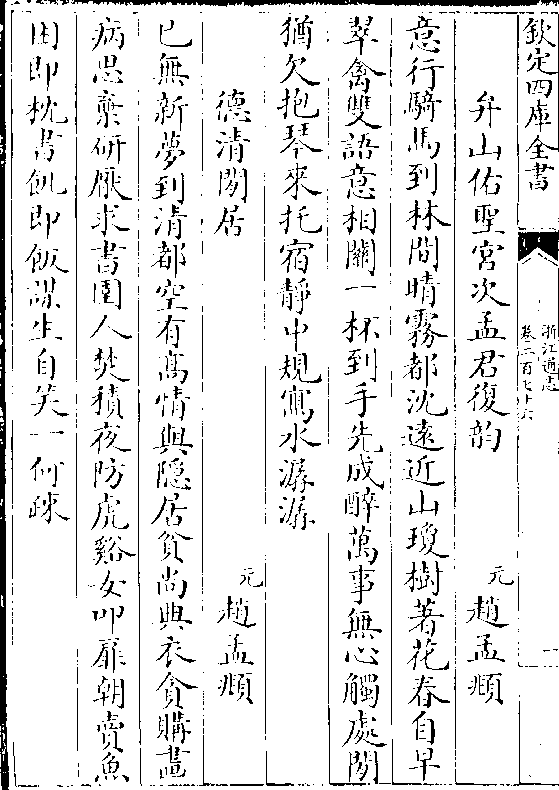 欽定四庫全書
浙江通志
卷二百七十六
弁山佑聖宮次孟君復韵
元 趙孟頫
意行騎馬到林間晴霧都沈遠近山瓊樹著花春自早
翠禽雙語意相關一杯到手先成醉萬事無心觸處閒
猶欠抱琴來托宿靜中規寫水潺潺
德清閒居
元 趙孟頫
已無新夢到清都空有髙情與隠居貧尚典衣貪購畫
病思棄研厭求書園人焚積夜防虎谿女叩扉朝賣魚
困即枕書飢即飯謀生自笑一何疎